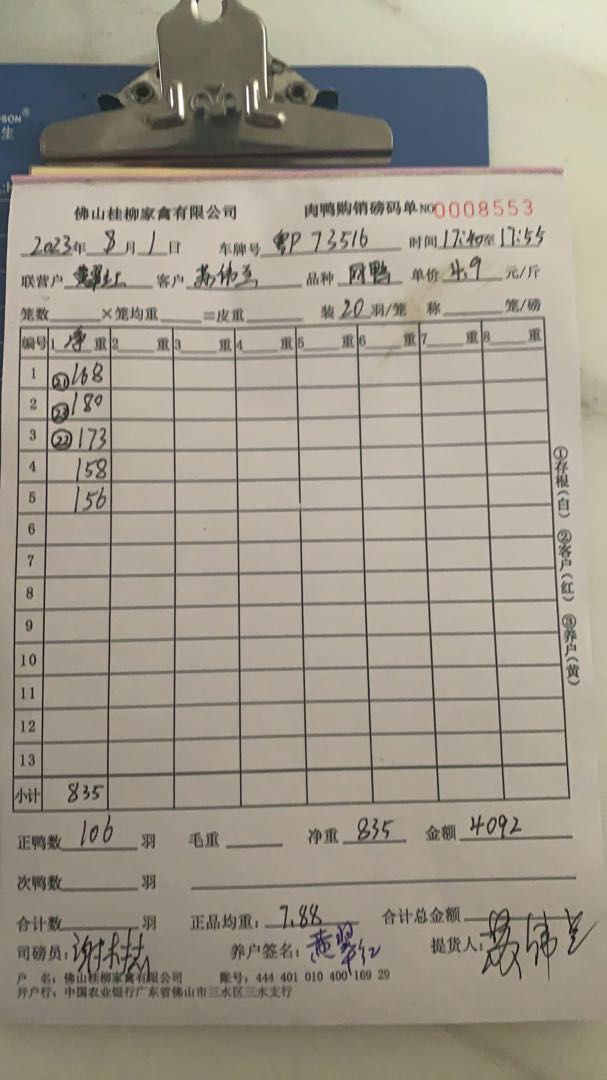 PSON®
生
佛山桂柳家禽有限公司 肉鸭购销磅码单 NO 0008553
2023年 8月 1日 车牌号 粤P 73516 时间 17:40至17:55
联营户 黄翠红 客户 苏伟兰 品种 网鸭 单价 4.9 元/斤
笼数 ×笼均重 =皮重 装 20 羽/笼 称 笼/磅
编号 1 净 重 2 重 3 重 4 重 5 重 6 重 7 重 8 重
1 ㉑168
2 ㉓180
3 ㉒173
4 158
5 156
6
7
8
9
10
11
12
13
小计 835
①存根(白) ②客户(红) ③养户(黄)
正鸭数 106 羽 毛重 净重 835 金额 4092
次鸭数 羽
合计数 羽 正品均重: 7.88 合计总金额
司磅员: 养户签名: 黄翠红 提货人: 苏伟兰
户 名: 佛山桂柳家禽有限公司 账号: 444 401 010 400 169 29
开户行: 中国农业银行广东省佛山市三水区三水支行